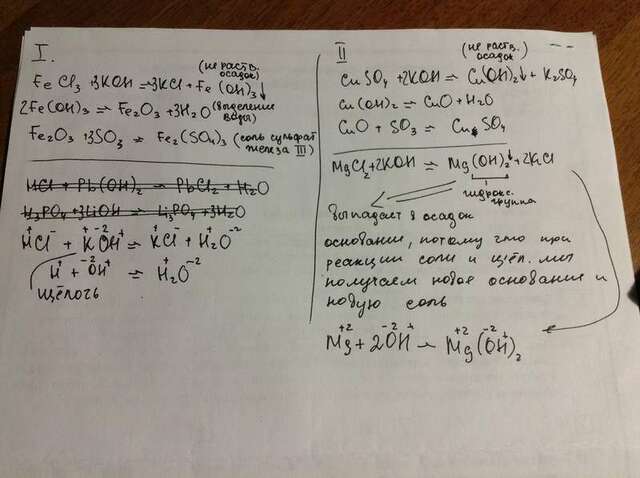 I.
(не раств. осадок)
FeCl₃ + 3KOH = 3KCl + Fe(OH)₃↓
2Fe(OH)₃ = Fe₂O₃ + 3H₂O (выделение воды)
Fe₂O₃ + 3SO₃ = Fe₂(SO₄)₃ (соль сульфат железа III)
HCl + Pb(OH)₂ = PbCl₂ + H₂O
H₃PO₄ + 3LiOH = Li₃PO₄ + 3H₂O
H⁺Cl⁻ + K⁺O⁻²H⁺ = K⁺Cl⁻ + H₂⁺O⁻²
H⁺ + O⁻²H⁺ = H₂⁺O⁻²
щёлочь
II
(не раств. осадок)
CuSO₄ + 2KOH = Cu(OH)₂↓ + K₂SO₄
Cu(OH)₂ = CuO + H₂O
CuO + SO₃ = CuSO₄
MgCl₂ + 2KOH = Mg(OH)₂↓ + 2KCl
гидрокс. группа
Выпадает в осадок
основание, потому что при
реакции соли и щёл. мы
получаем новое основание и
новую соль
Mg⁺² + 2O⁻²H⁺ = Mg⁺²(O⁻²H⁺)₂